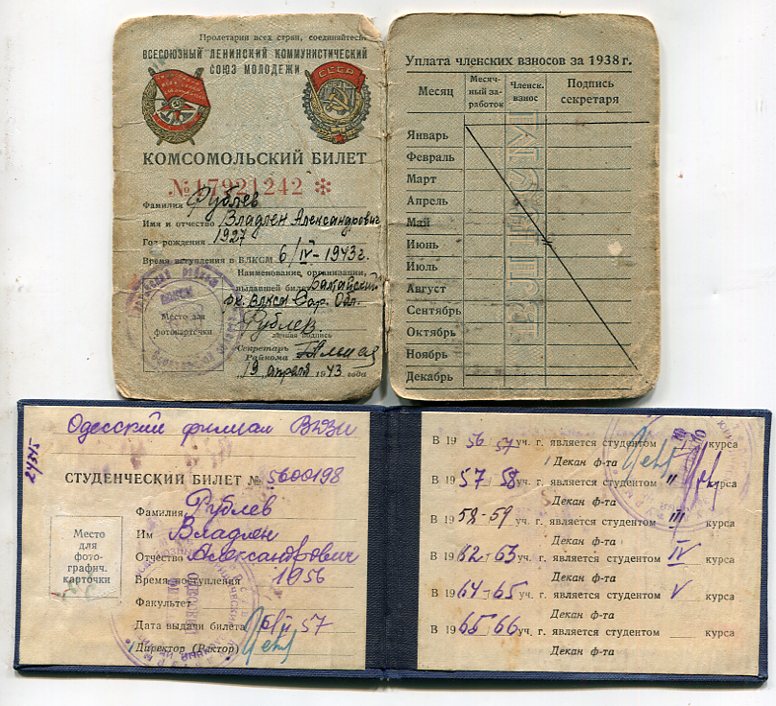 Пролетарии всех стран, соединяйтесь
ВСЕСОЮЗНЫЙ ЛЕНИНСКИЙ КОММУНИСТИЧЕСКИЙ
СОЮЗ МОЛОДЕЖИ
СССР
КОМСОМОЛЬСКИЙ БИЛЕТ
№ 17921242 *
Фамилия Рублев
Имя и отчество Владлен Александрович
Год рождения 1927
Время вступления в ВЛКСМ 6/IV-1943г.
Наименование организации,
выдавшей билет Балтайский
рк. ВЛКСМ Сар. Обл.
Рублев
личная подпись
Место для
фотокарточки
Секретарь
Райкома
19 апреля 1943 года
Уплата членских взносов за 1938 г.
Месяц
Месяч-
ный за-
работок
Членск.
взнос
Подпись
секретаря
Январь
Февраль
Март
Апрель
Май
Июнь
Июль
Август
Сентябрь
Октябрь
Ноябрь
Декабрь
Одесский филиал
СТУДЕНЧЕСКИЙ БИЛЕТ № 5600198
Фамилия Рублев
Им Владлен
Отчество Александрович
Время поступления 1956
Факультет
Дата выдачи билета 57
Директор (Ректор)
Место
для
фото-
графич.
карточки
В 1956 57 уч. г. является студентом курса
Декан ф-та
В 1957 58 уч. г. является студентом II курса
Декан ф-та
В 1958-59 уч. г. является студентом III курса
Декан ф-та
В 1962-63 уч. г. является студентом IV курса
Декан ф-та
В 1964-65 уч. г. является студентом V курса
Декан ф-та
В 1965-66 уч. г. является студентом курса
Декан ф-та